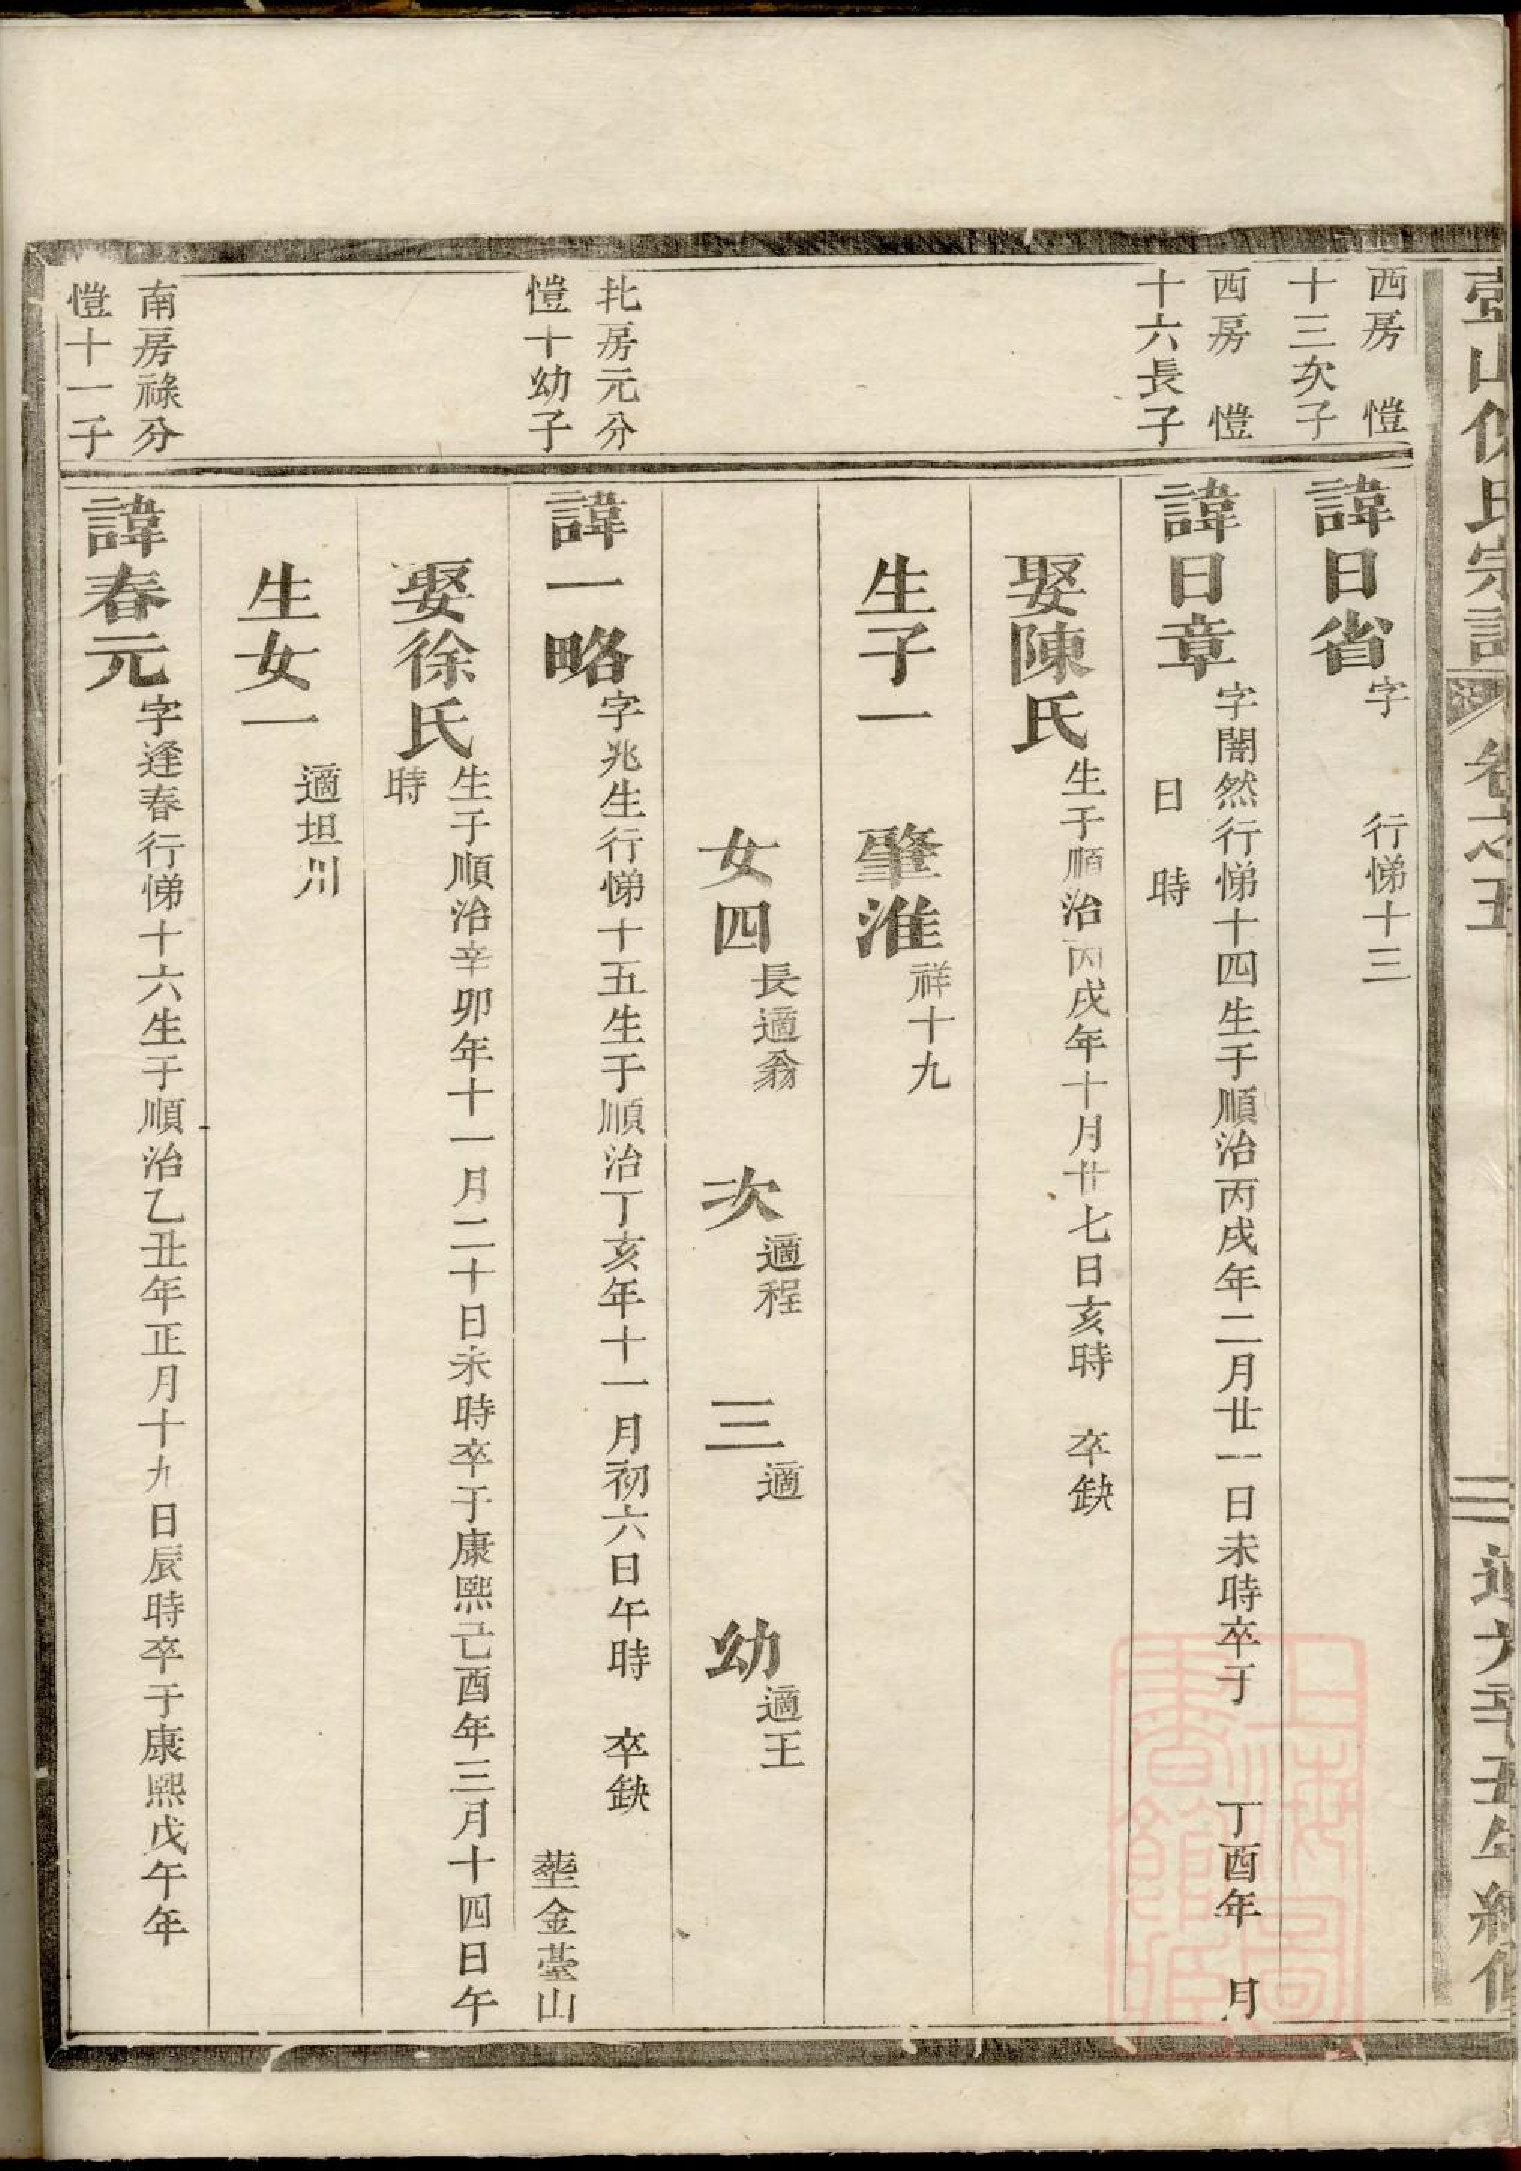 壺山倪氏宗譜 卷之五 三 道光廿五年續修
西房 愷
十三次子
諱日省字 行悌十三
西房 愷
十六長子
諱日章字闇然行悌十四生于順治丙戌年二月廿一日未時卒于 丁酉年 月
日 時
娶陳氏生于順治丙戌年十月廿七日亥時 卒缺
生子一 肇淮祥十九
女四長適翁 次適程 三適 幼適王
北房元分
愷十幼子
諱一略字兆生行悌十五生于順治丁亥年十一月初六日午時 卒缺
塟金臺山
娶徐氏生于順治辛卯年十一月二十日未時卒于康熙己酉年三月十四日午
時
生女一 適坦川
南房祿分
愷十一子
諱春元字逢春行悌十六生于順治乙丑年正月十九日辰時卒于康熙戊午年